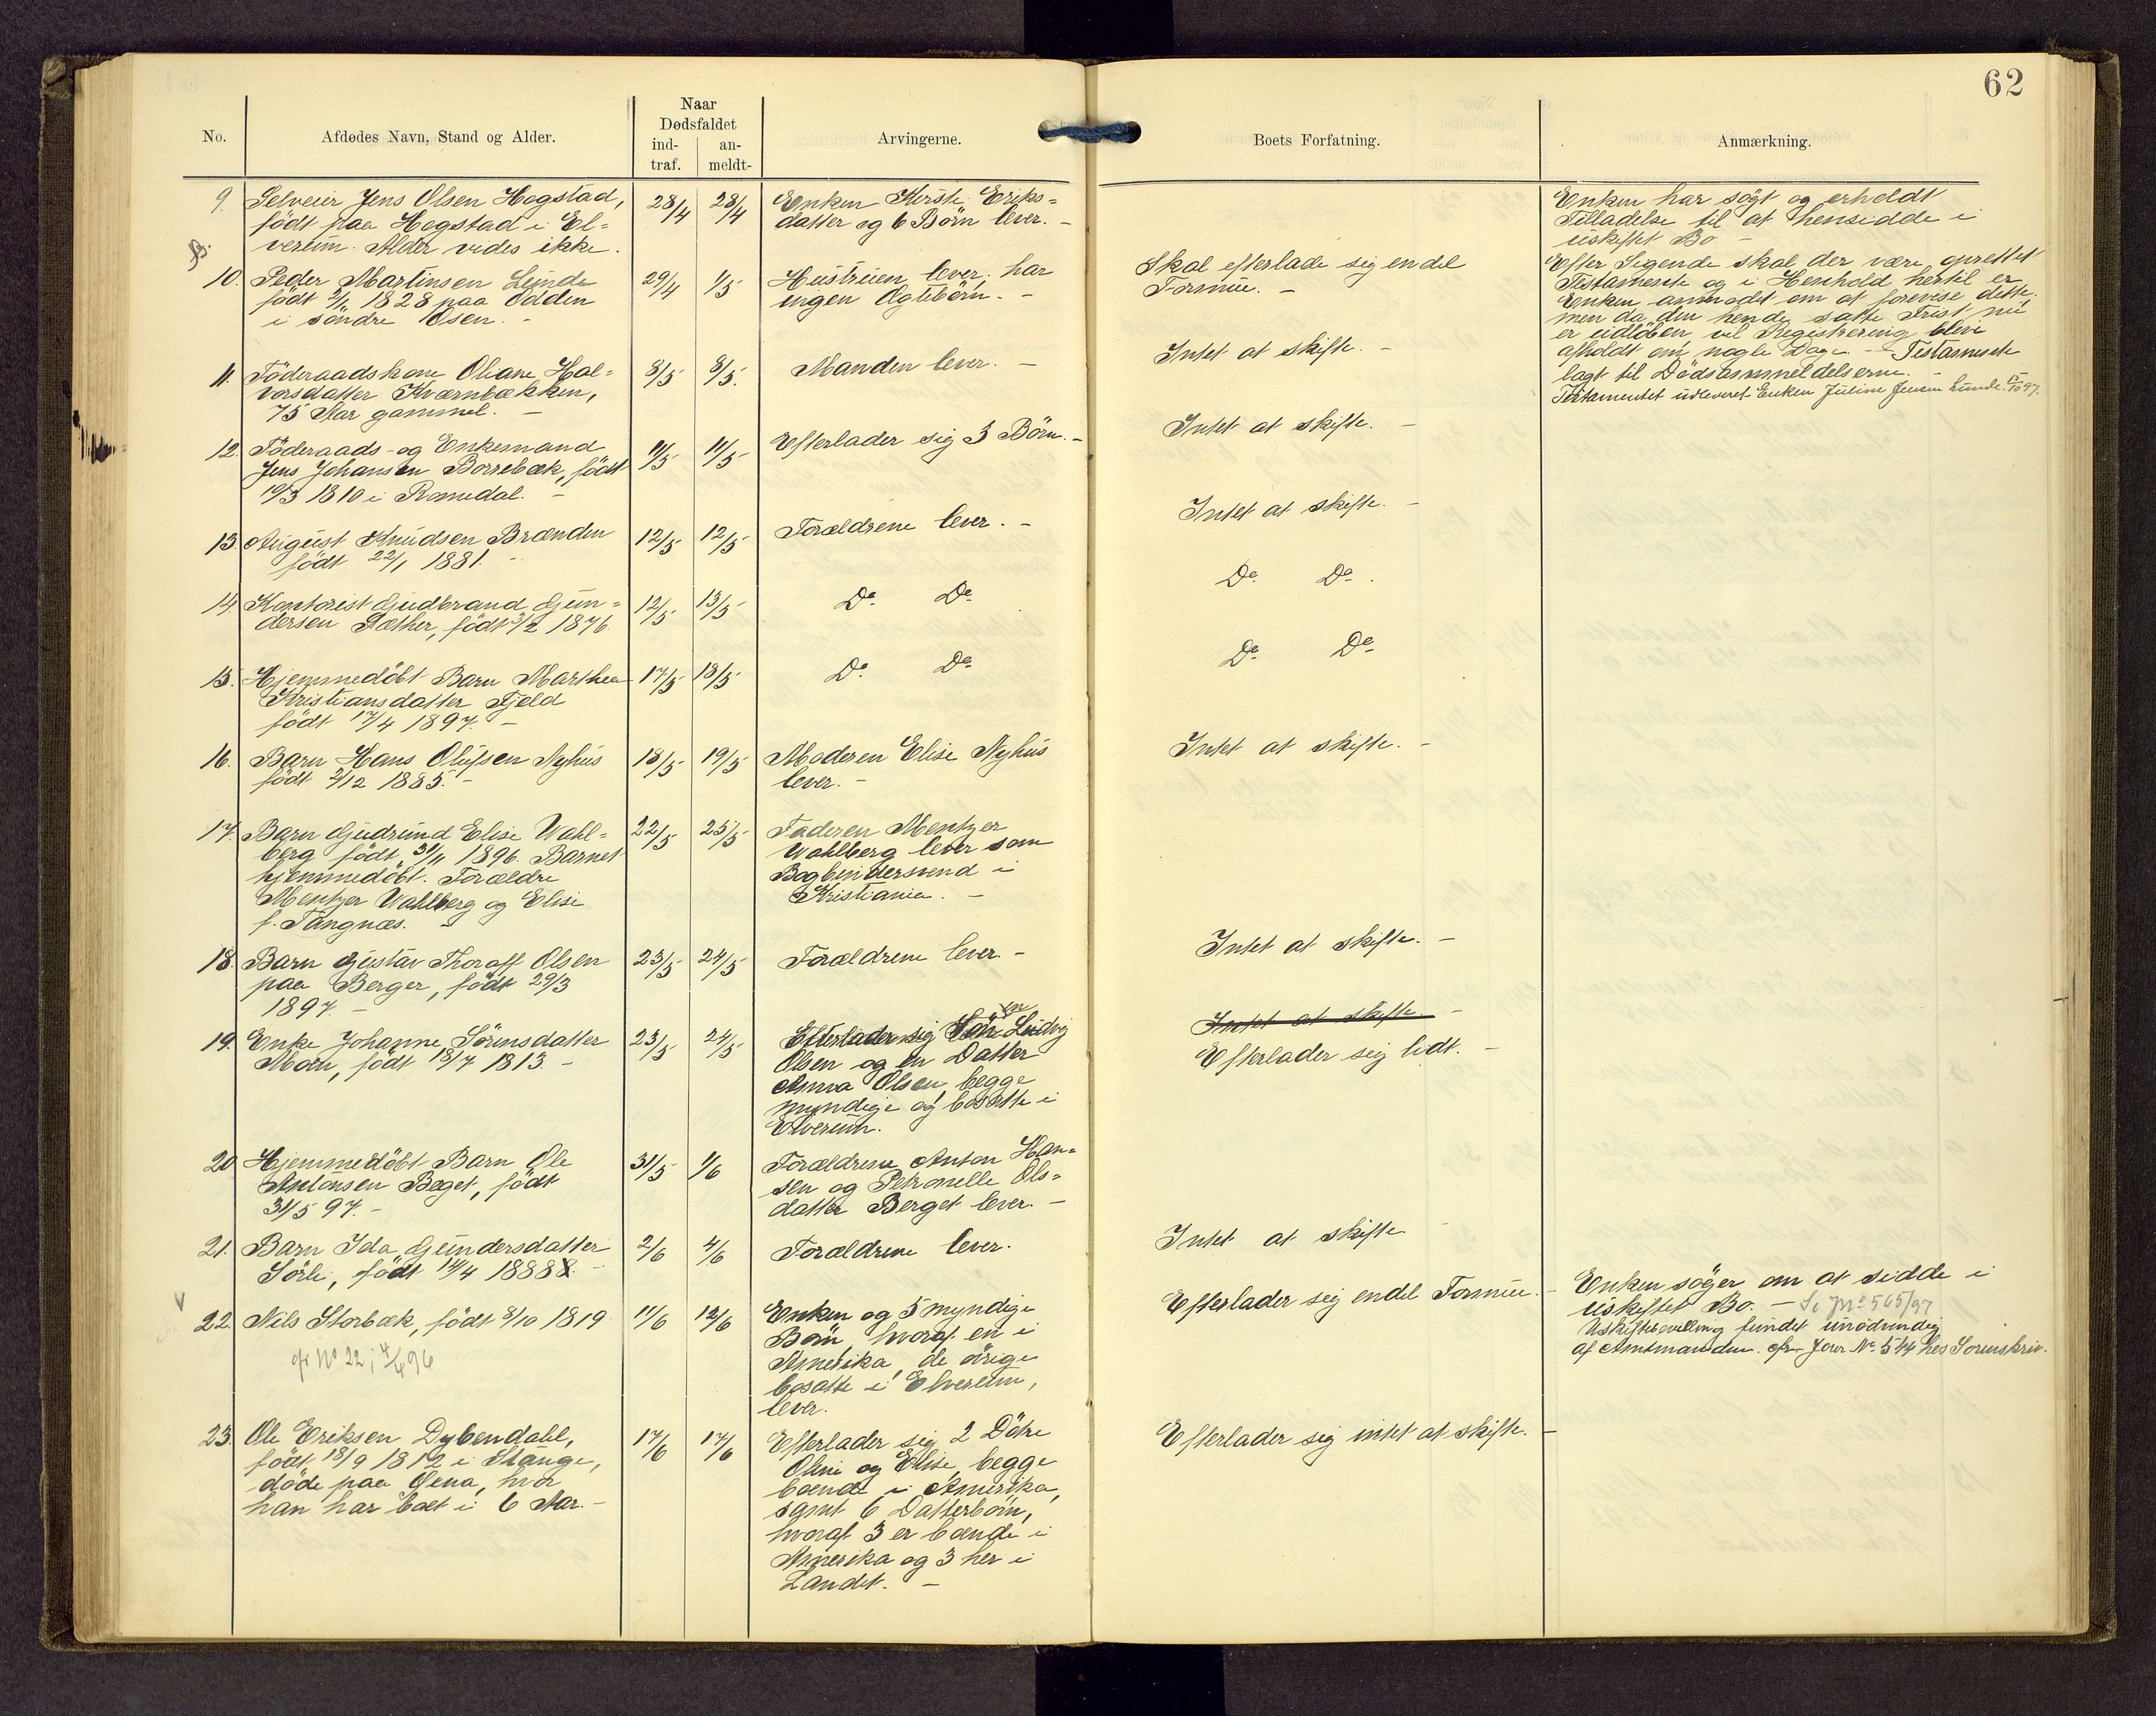 62
No.
Afdødes Navn, Stand og Alder.
Naar
Dødsfaldet
ind-
traf.
an-
meldt-
Arvingerne.
Boets Forfatning.
Anmærkning.
9. Selveier Jens Olsen Hagstad,
født paa Hegstad i El=
verum. Alder vides ikke.
28/4 28/4
Enken Kersti Eriks=
datter og 6 Börn lever. -
Enken har søgt og erholdt
Tilladelse til at hensidde i
uskiftet Bo. -
10. Peder Martinsen Lunde
født 2/1 1828 paa Odden
i söndre Osen. -
29/4 1/5
Hustruen lever, har
ingen Ægtebörn. -
Skal efterlade sig endel
Formue. -
Efter Sigende skal der være oprettet
Testamente og i Henhold hertil er
Enken anmodet om at forevise dette,
men da den hende satte Frist nu
er udlöben vil Registrering blive
afholdt om nogle Dage. - Testamente
lagt til Dödsanmeldelserne. -
Testamentet udleveret Enken Juline Jensen Lunde 15/10 97.
11. Föderaadskone Oliane Hal=
vorsdatter Kværnbækken,
75 Aar gammel. -
8/5 8/5.
Manden lever. -
Intet at skifte. -
12. Föderaads- og Enkemand
Jens Johansen Borrebæk, født
19/3 1810 i Romedal. -
11/5 11/5
Efterlader sig 3 Börn. -
Intet at skifte. -
13. August Knudsen Brænden
født 22/1 1881. -
12/5 12/5
Forældrene lever. -
Intet at skifte. -
14. Kontorist Gudbrand Gun=
dersen Sæther, født 3/2 1876.
12/5 13/5
Do. Do.
Do. Do.
15. Hjemmedöbt Barn Marthea
Kristiansdatter Fjeld
født 17/4 1897. -
17/5 18/5
Do. Do.
Do. Do.
16. Barn Hans Olufsen Nyhus
født 2/12 1885. -
18/5 19/5
Moderen Elise Nyhus
lever. -
Intet at skifte. -
17. Barn Gudrund Elise Wahl=
berg født 31/11 1896. Barnet
hjemmedöbt. Forældre
Mentzer Wahlberg og Elise
f. Tangnæs. -
22/5 25/5
Faderen Mentzer
Wahlberg lever som
Bogbindersvend i
Kristiania. -
18. Barn Gustav Thoralf Olsen
paa Berger, født 29/3
1897. -
23/5 24/5
Forældrene lever. -
Intet at skifte. -
19. Enke Johanne Sörensdatter
Moen, født 18/7 1813. -
23/5 24/5
Efterlader sig Ludvig
Olsen og en Datter
Anna Olsen, begge
myndige og bosatte i
Elverum.
Intet at skifte. -
Efterlader sig lidt. -
20. Hjemmedöbt Barn Ole
Antonsen Beget, født
31/5 97. -
31/5 1/6
Forældrene Anton Han=
sen og Petronelle Ols=
datter Berget lever. -
21. Barn Ida Gundersdatter
Sörli, født 14/4 1888. -
2/6 4/6
Forældrene lever.
Intet at skifte
22. Nils Storbæk, født 8/10 1819
cfr No 22 i 4/4 96
11/6 12/6
Enken og 5 myndige
Börn hvoraf en i
Amerika, de övrige
bosatte i Elverum,
lever.
Efterlader sig endel Formue. -
Enken söger om at sidde i
uskiftet Bo. - Se J No 565/97
Uskiftebevilling fundet unödvendig
af Amtmanden. cfr. Jour No. 544 hos Sorenskriv.
23. Ole Eriksen Dybendahl,
født 18/9 1812 i Stange,
döde paa Öena, hvor
han har boet i 6 Aar. -
17/6 17/6
Efterlader sig 2 Dötre
Oline og Elise, begge
boende i Amerika,
samt 6 Datterbörn,
hvoraf 3 er boende i
Amerika og 3 her i
Landet. -
Efterlader sig intet at skifte. -